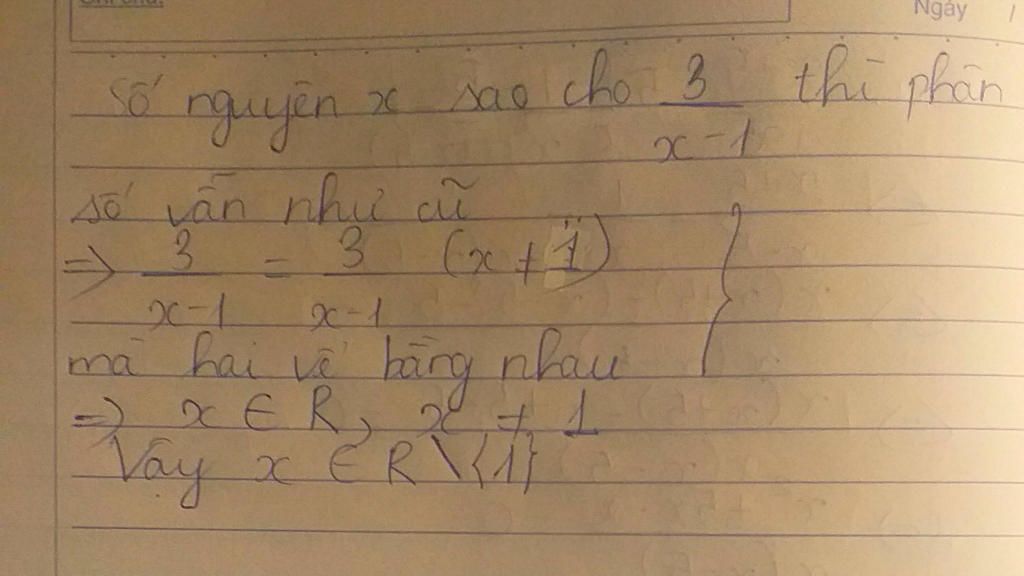 Ghi chú:
Ngày /
Số nguyên x sao cho 3/(x-1) thì phân
số vẫn như cũ
=> 3/(x-1) = 3/(x-1) (x ≠ 1) }
mà hai vế bằng nhau
=> x ∈ R, x ≠ 1
Vây x ∈ R \ {1}